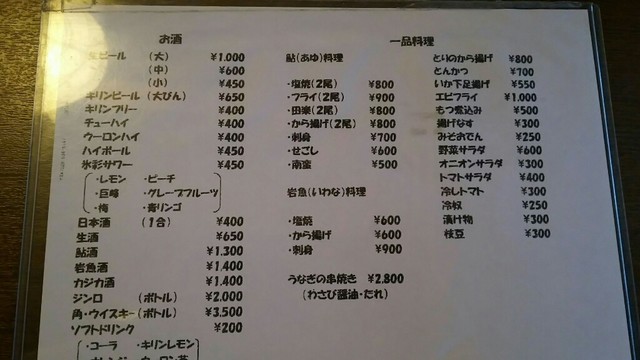 お酒
生ビール （大） ¥1,000
（中） ¥600
（小） ¥450
キリンビール（大びん） ¥650
キリンフリー ¥400
チューハイ ¥400
ウーロンハイ ¥400
ハイボール ¥450
氷彩サワー ¥450
・レモン ・ピーチ
・巨峰 ・グレープフルーツ
・梅 ・青リンゴ
日本酒 （1合） ¥400
生酒 ¥650
鮎酒 ¥1,300
岩魚酒 ¥1,400
カジカ酒 ¥1,400
ジンロ （ボトル） ¥2,000
角・ウイスキー（ボトル） ¥3,500
ソフトドリンク ¥200
・コーラ ・キリンレモン
一品料理
鮎（あゆ）料理
・塩焼（2尾） ¥800
・フライ（2尾） ¥900
・田楽（2尾） ¥800
・から揚げ（2尾） ¥800
・刺身 ¥700
・せごし ¥600
・南蛮 ¥500
岩魚（いわな）料理
・塩焼 ¥600
・から揚げ ¥600
・刺身 ¥900
うなぎの串焼き ¥2,800
（わさび醤油・たれ）
とりのから揚げ ¥800
とんかつ ¥700
いか下足揚げ ¥550
エビフライ ¥1,000
もつ煮込み ¥500
揚げなす ¥300
みそおでん ¥250
野菜サラダ ¥600
オニオンサラダ ¥300
トマトサラダ ¥400
冷しトマト ¥300
冷奴 ¥250
漬け物 ¥300
枝豆 ¥300